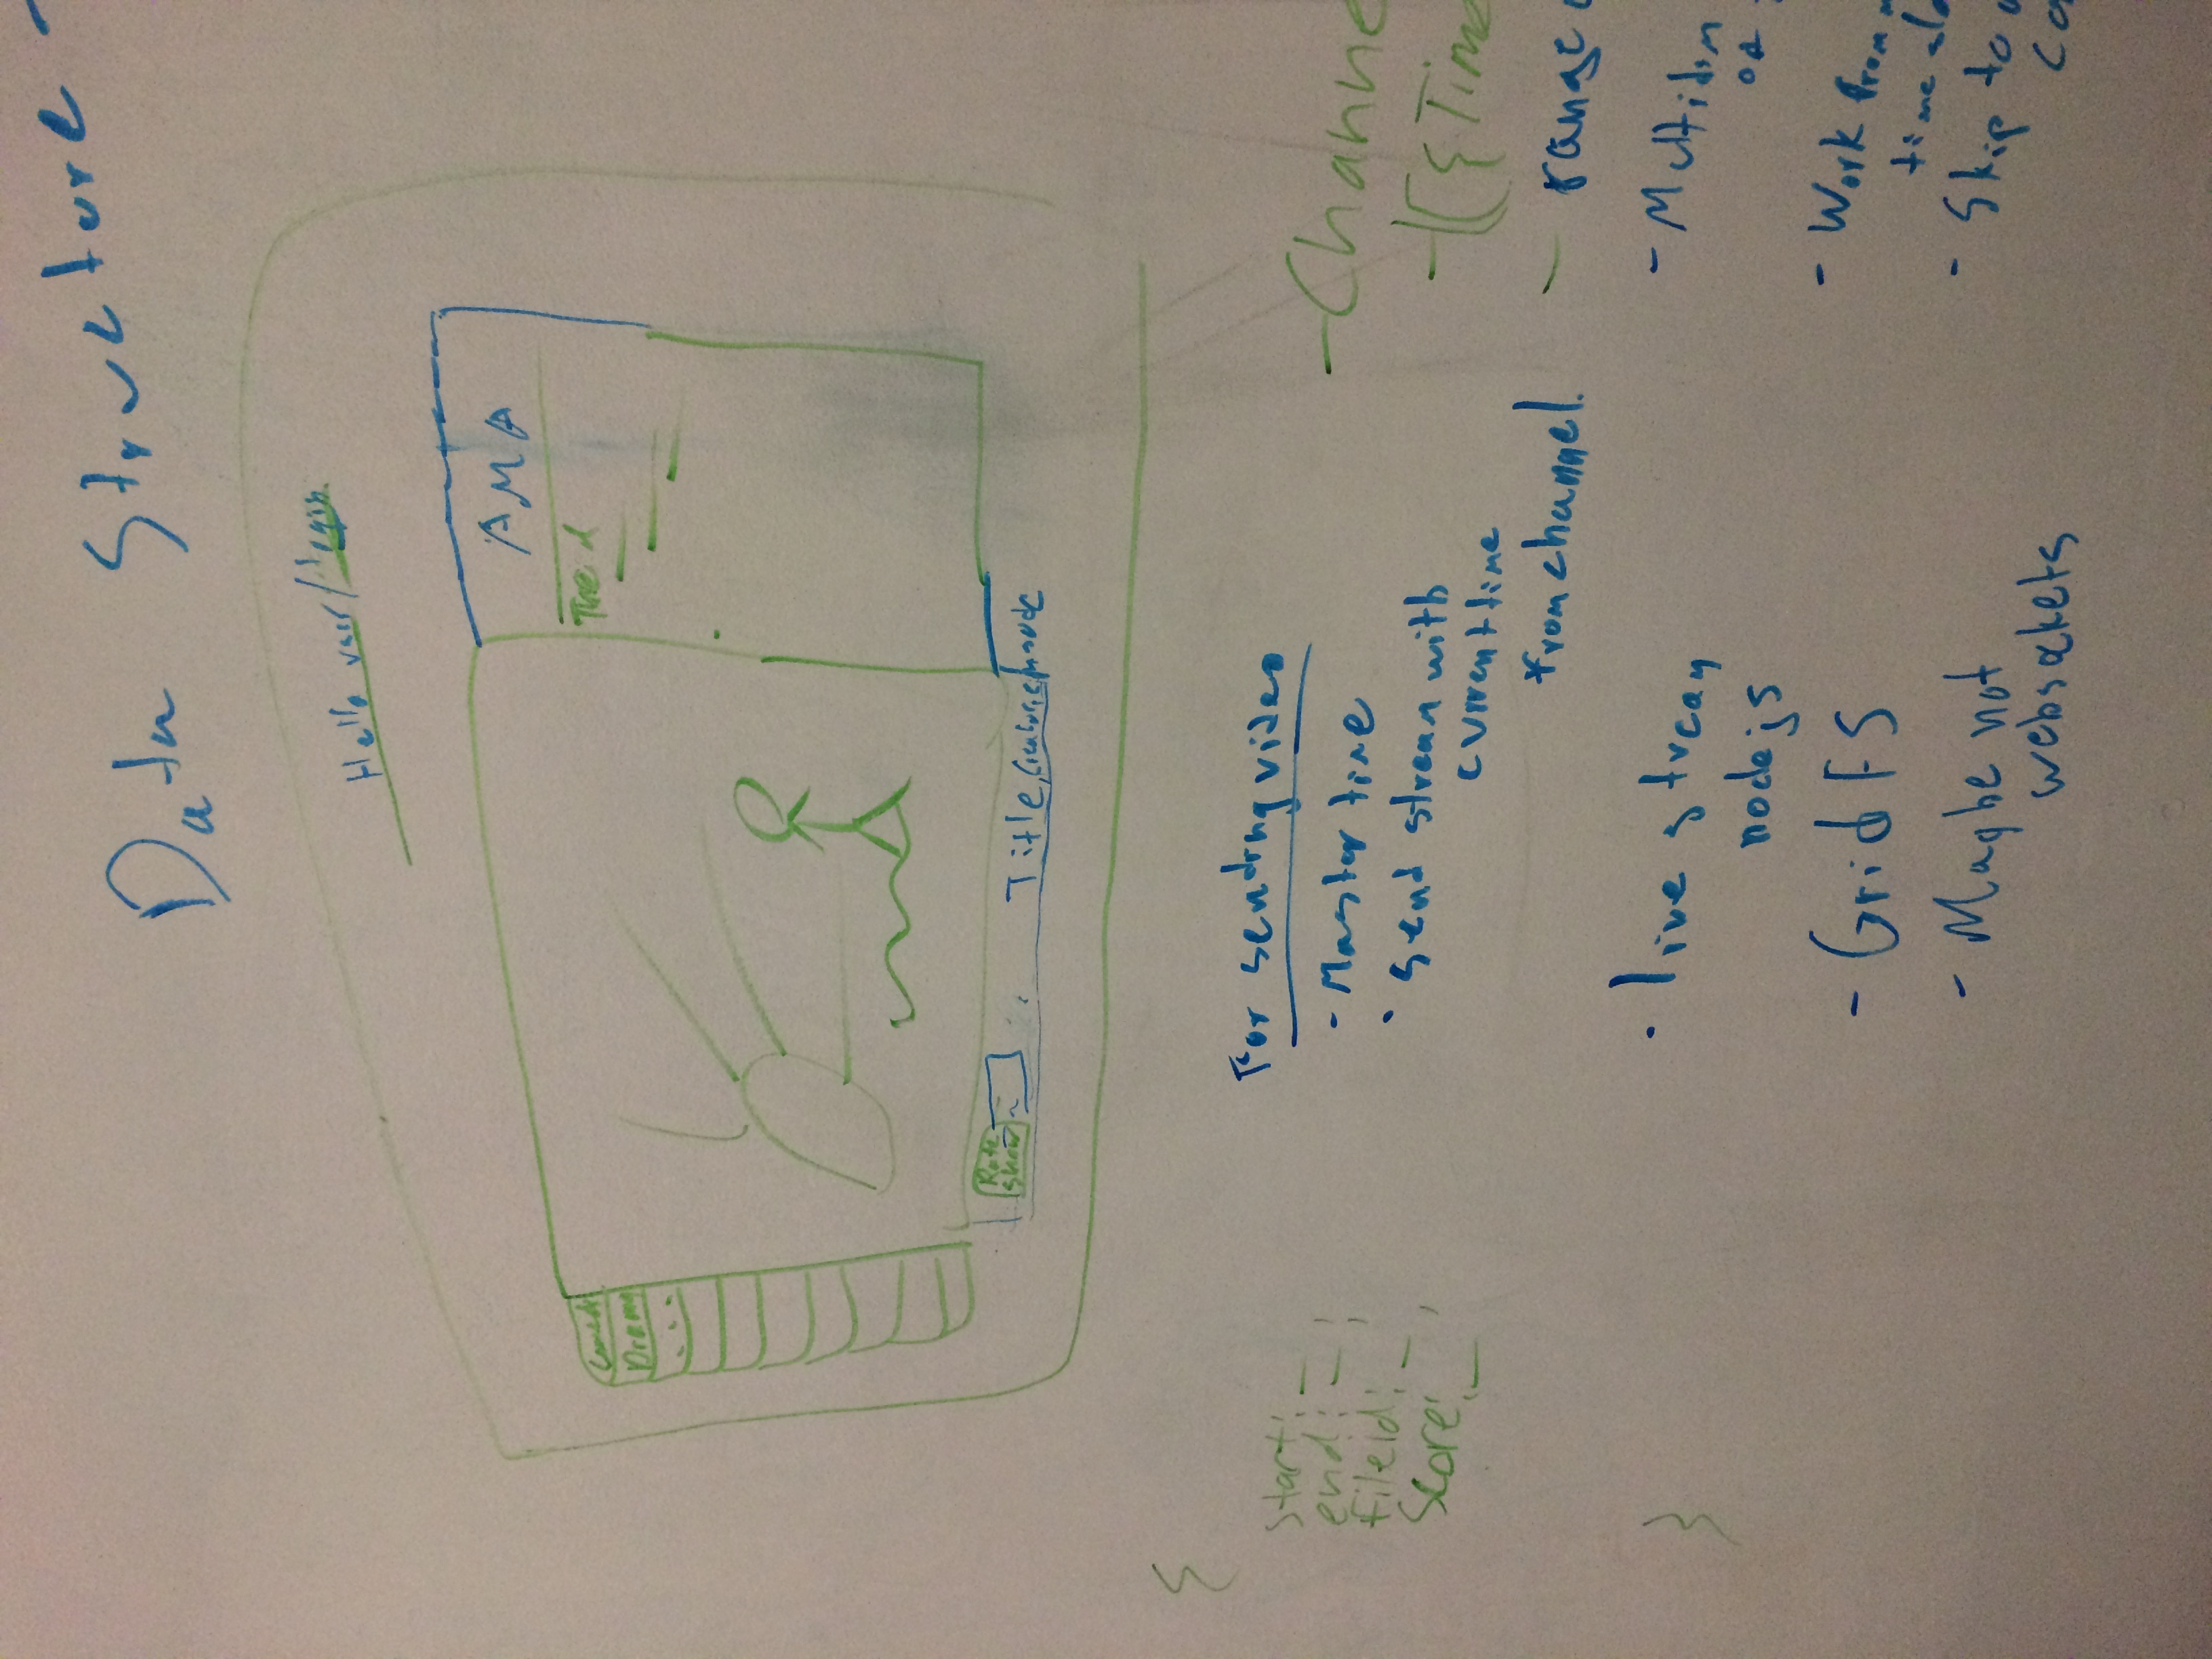 Data Structure -
Hello user/login
AMA
The d
Comedy
Drama
...
Rate
Show
Title, Creator, episode
{
start: _
end: _ ;
fileid: _ ,
Score: _
}
For sending video
- Master time
· Send stream with
current time
from channel.
· live stream
nodejs
- GridFS
- Maybe not
websokets
- Channe
- [{Time
- range
- Multidim
- Work from m
time slo
- Skip to
co